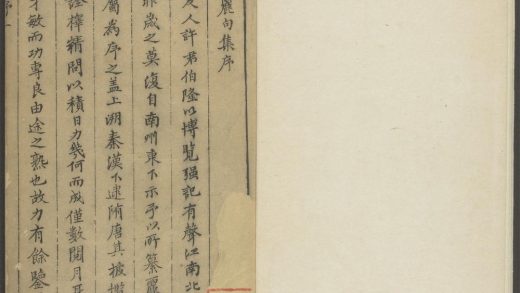 麗句集序
友人許君伯隆以博覽强記有聲江南北
昨歲之莫復自南州東下示予以所纂麗
屬為序之盖上溯秦漢下逮隋唐其披擷
精問以積日力幾何而成僅數閱月耳
才敏而功專良由途之熟也故力有餘鑒
序一